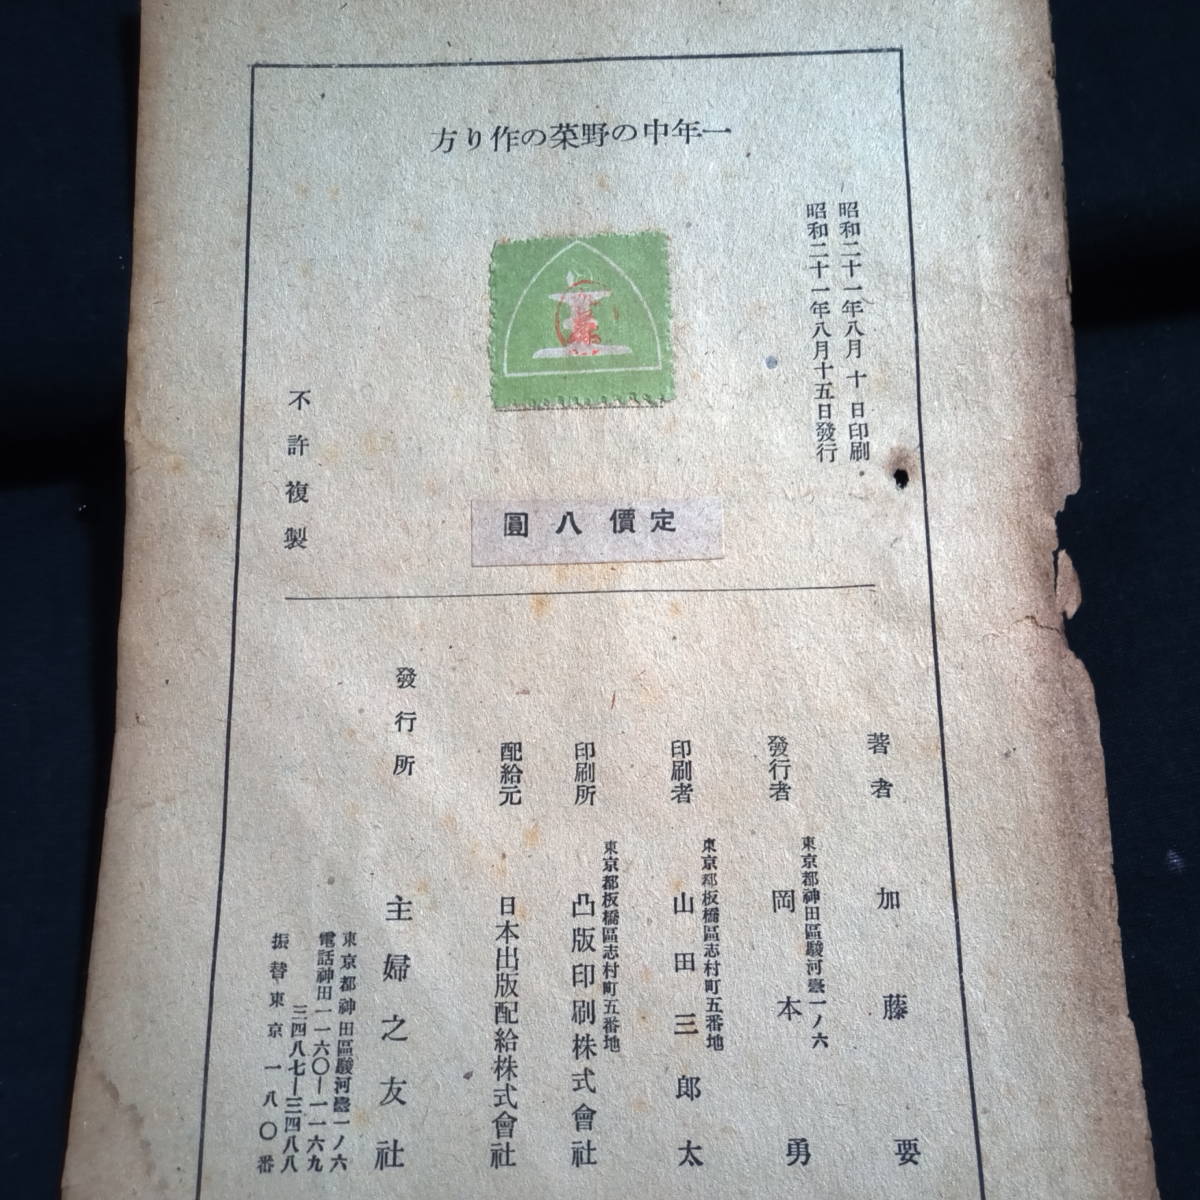 一年中の野菜の作り方
昭和二十一年八月十日印刷
昭和二十一年八月十五日發行
不許複製
定價八圓
著者 加藤要
發行者 東京都神田區駿河臺一ノ六
岡本勇
印刷者 東京都板橋區志村町五番地
山田三郎太
印刷所 東京都板橋區志村町五番地
凸版印刷株式會社
配給元 日本出版配給株式會社
發行所 主婦之友社
東京都神田區駿河臺一ノ六
電話神田一一六〇—一一六九
三四八七—三四八八
振替東京一八〇番